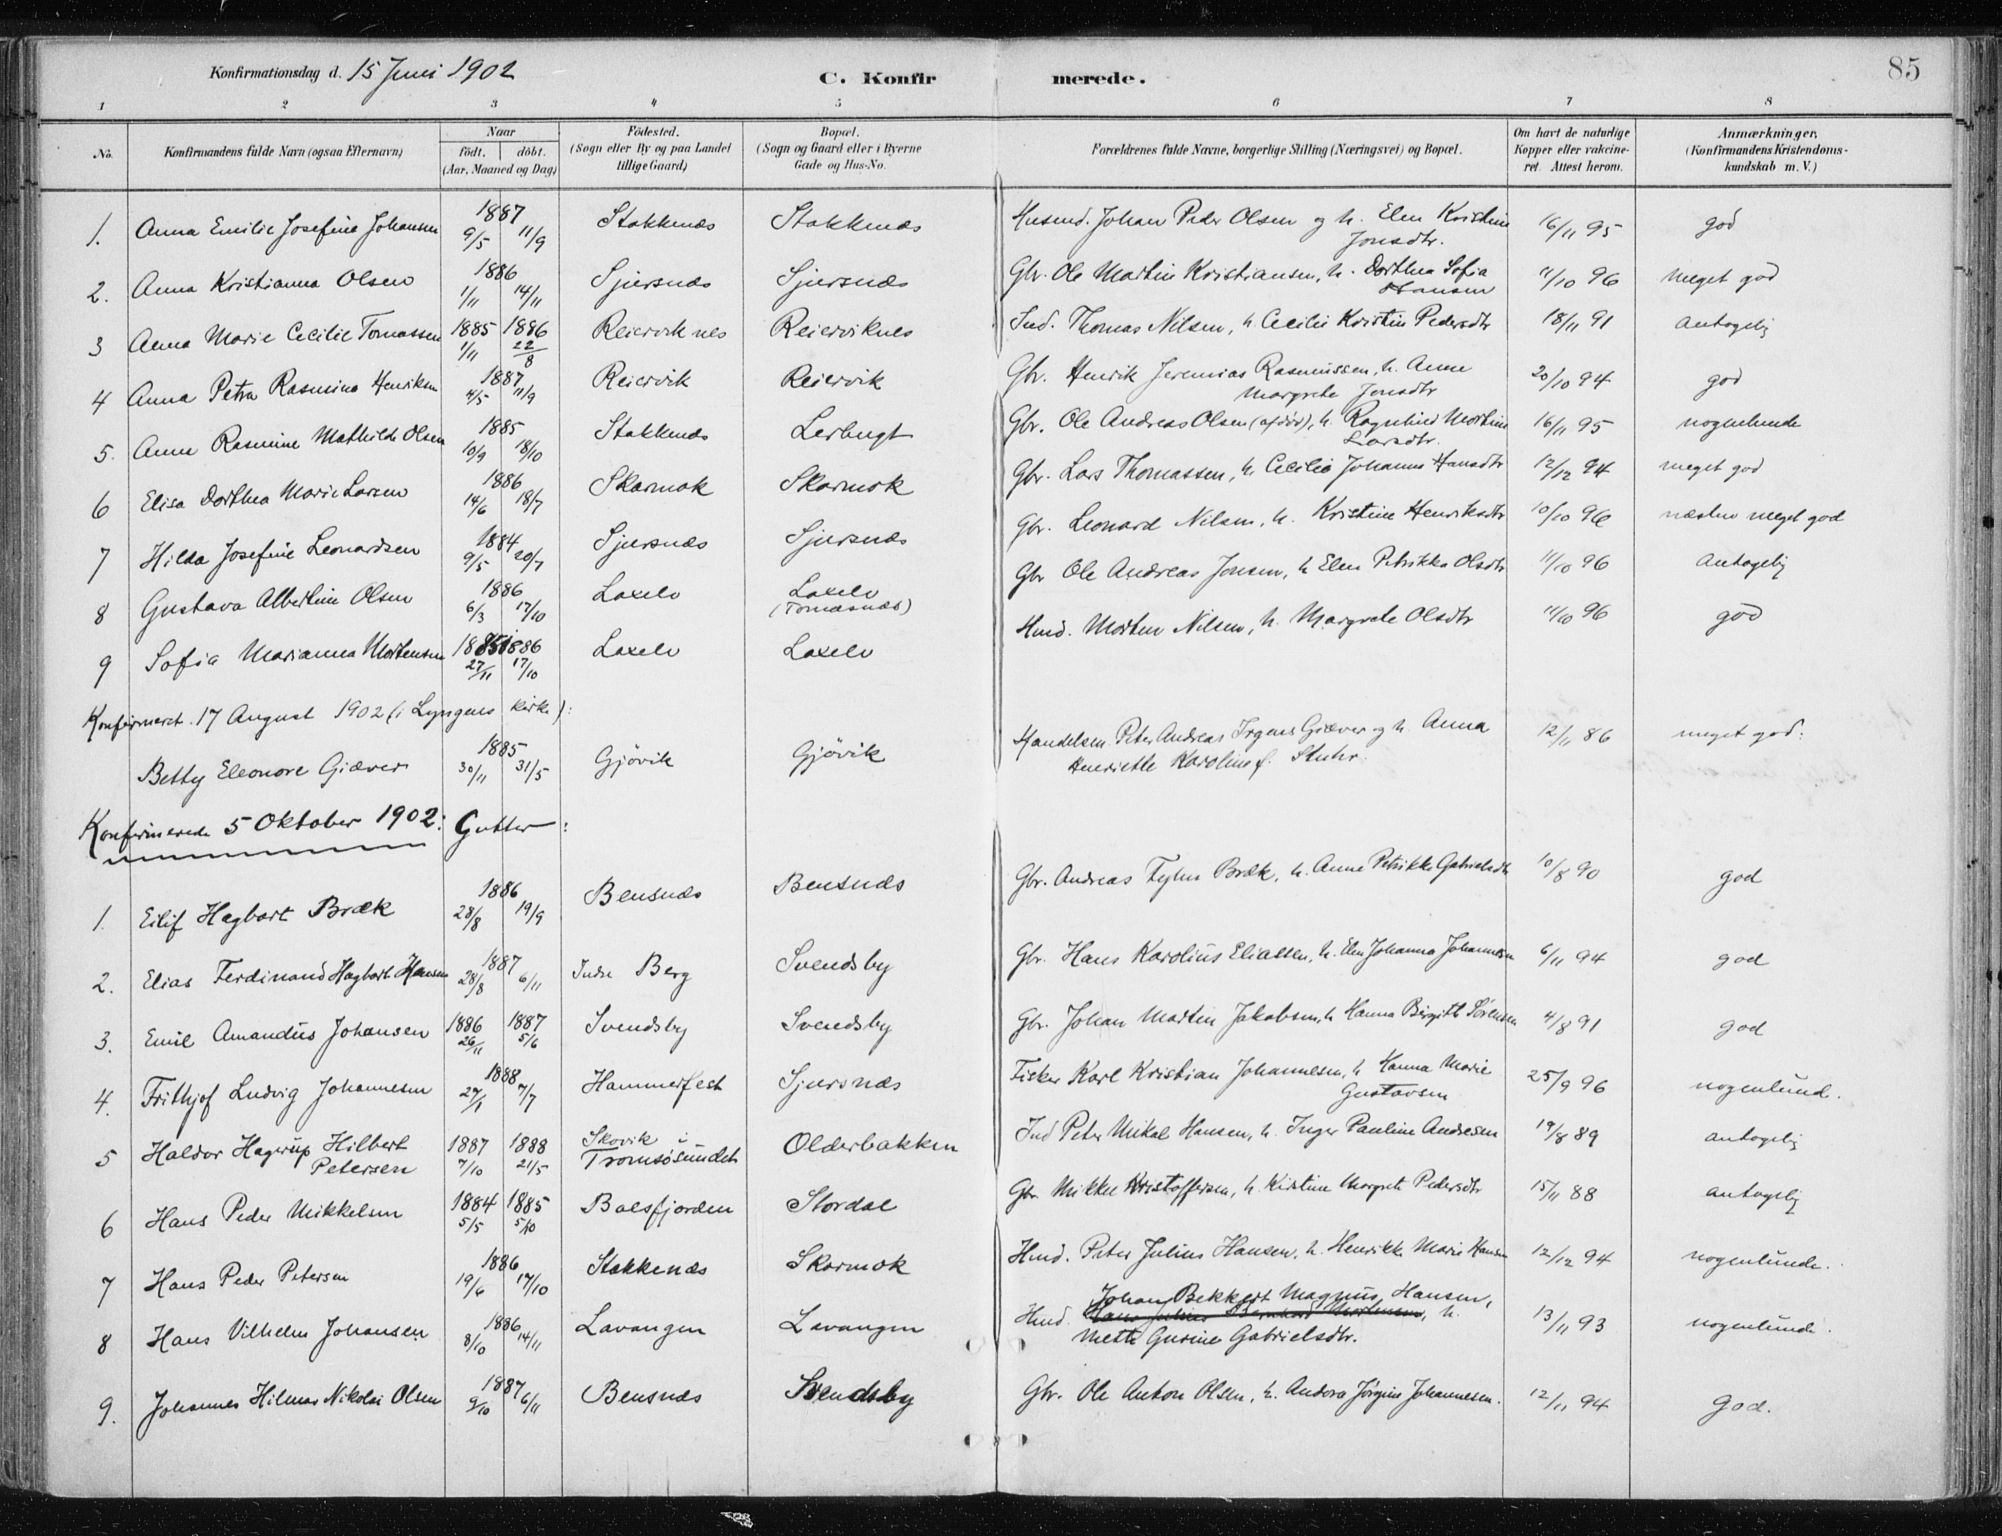 Konfirmationsdag d. 15 Juni 1902
C. Konfirmerede.
85
1 2 3 4 5 6 7 8
No. Konfirmandens fulde Navn (ogsaa Efternavn) Naar födt. döbt. (Aar, Maaned og Dag) Födested. (Sogn eller By og paa Landet tillige Gaard) Bopæl. (Sogn og Gaard eller i Byerne Gade og Hus-No. Forældrenes fulde Navne, borgerlige Stilling (Næringsvei) og Bopæl. Om havt de naturlige Kopper eller vakcineret. Attest herom. Anmærkninger. (Konfirmandens Kristendomskundskab m. V.)
1. Anna Emilie Josefine Johansen 1887 9/5 11/9 Stakkenæs Stakkenæs Husmd. Johan Peder Olsen og h. Elen Kristine Jonsdtr. 16/11 95 god
2. Anna Kristianna Olsen 1886 1/11 14/11 Sjursnæs Sjursnæs Gbr. Ole Martin Kristiansen, h. Dorthea Sofia Hansen 11/10 96 meget god
3 Anna Marie Cecilie Tomassen 1885 1/11 1886 22/8 Reierviknes Reierviknes Ind. Thomas Nilsen, h Cecilie Kristine Pedersdtr 18/11 91 antagelig
4 Anna Petra Rasmina Henriksen 1887 4/5 11/9 Reiervik Reiervik Gbr. Henrik Jeremias Rasmussen, h. Anne Margrete Jonsdtr 20/10 94 god
5. Anne Rasmine Mathilde Olsen 1885 10/9 18/10 Stakkenæs Lerbugt Gbr. Ole Andreas Olsen (afdöd), h. Ragnhild Martine Larsdtr. 16/11 95 nogenlunde
6 Elisa Dorthea Marie Larsen 1886 14/6 18/7 Skarmok Skarmok Gbr. Lars Thomassen, h. Cecilie Johanne Hansdtr 12/12 94 meget god
7 Hilda Josefine Leonardsen 1884 9/5 20/7 Sjursnæs Sjursnæs Gbr. Leonard Nilsen, h. Kristine Henriksdtr 10/10 96 næsten meget god
8 Gustava Albertine Olsen 1886 6/3 17/10 Laxelv Laxelv (Tomasnæs) Gbr Ole Andreas Jonsen, h Elen Petrikke Olsdtr 11/10 96 Antagelig
9 Sofia Marianna Mortensen 1885 27/11 1886 17/10 Laxelv Laxelv Hmd. Morten Nilsen, h. Margrete Olsdtr 11/10 96 god
Konfirmeret 17 August 1902 (i Lyngens kirke):
Betty Eleonore Giæver 1885 30/11 31/5 Gjövik Gjövik Handelsm. Peter Andreas Irgens Giæver og h. Anna Henriette Karoline f. Stuhr. 12/11 86 meget god.
Konfirmerede 5 Oktober 1902: Gutter:
1. Eilif Hagbart Bræk 1886 28/8 19/9 Bensnæs Bensnæs Gbr. Andreas Bræk, h. Anne Petrikke Gabrielsdtr 10/8 90 god
2. Elias Ferdinand Hagbart Hansen 1887 28/8 6/11 Indre Berg Svendsby Gbr. Hans Karolius Eliassen, h. Elen Johanna Johannesen 6/11 94 god
3. Emil Amandus Johansen 1886 26/11 1887 5/6 Svendsby Svendsby Gbr. Johan Martin Jakobsen, h Hanna Birgitte Sörensen 4/8 91 god
4. Frithjof Ludvig Johannesen 1888 27/1 7/7 Hammerfest Sjursnæs Fisker Karl Kristian Johannesen, h Hanna Marie Gustavsen 25/9 96 nogenlund.
5 Haldor Hagerup Hilbert Petersen 1887 7/10 1888 21/5 Skovik i Tromsösundet Olderbakken Ind Peter Mikal Hansen, h. Inger Pauline Andresen 19/8 89 antagelig
6 Hans Peder Mikkelsen 1884 5/5 1885 5/10 Balsfjorden Stordal Gbr Mikkel Kristoffersen, h. Kirstine Margrete Pedersdtr 15/11 88 antagelig
7 Hans Peder Petersen 1886 19/6 17/10 Stakkenæs Skarmok Hmd. Peter Julius Hansen, h. Henrikke Marie Hansen 12/12 94 nogenlunde.
8 Hans Vilhelm Johansen 1886 8/10 14/11 Lavangen Lavangen Hmd. Johan Bekkert Magnus Hansen, h. Mette Gurine Gabrielsdtr. 13/11 93 nogenlunde.
9. Johannes Hilmar Nikolai Olsen 1887 9/10 6/11 Bensnæs Svendsby Gbr. Ole Anton Olsen, h. Andora Jörgine Johannesen. 12/11 94 God.